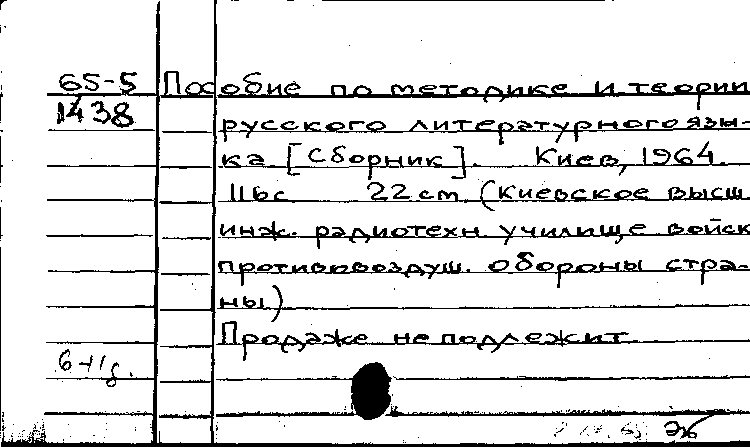 65-5 Пособие по методике и теории
1438 русского литературного язы-
ка [Сборник]. Киев, 1964.
116с 22 cm (Киевское высш
инж. радиотехн. училище войск
противовоздуш. обороны стра-
ны)
Продаже не подлежит